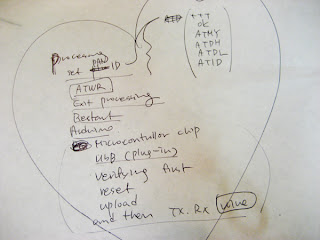 Processing
set PAN ID
ATWR
Exit processing
Restart
Arduino
Microcontroller chip
USB (plug-in)
verifying first
reset
upload
and then TX.RX wire
+++
OK
ATMY
ATDH
ATDL
ATID